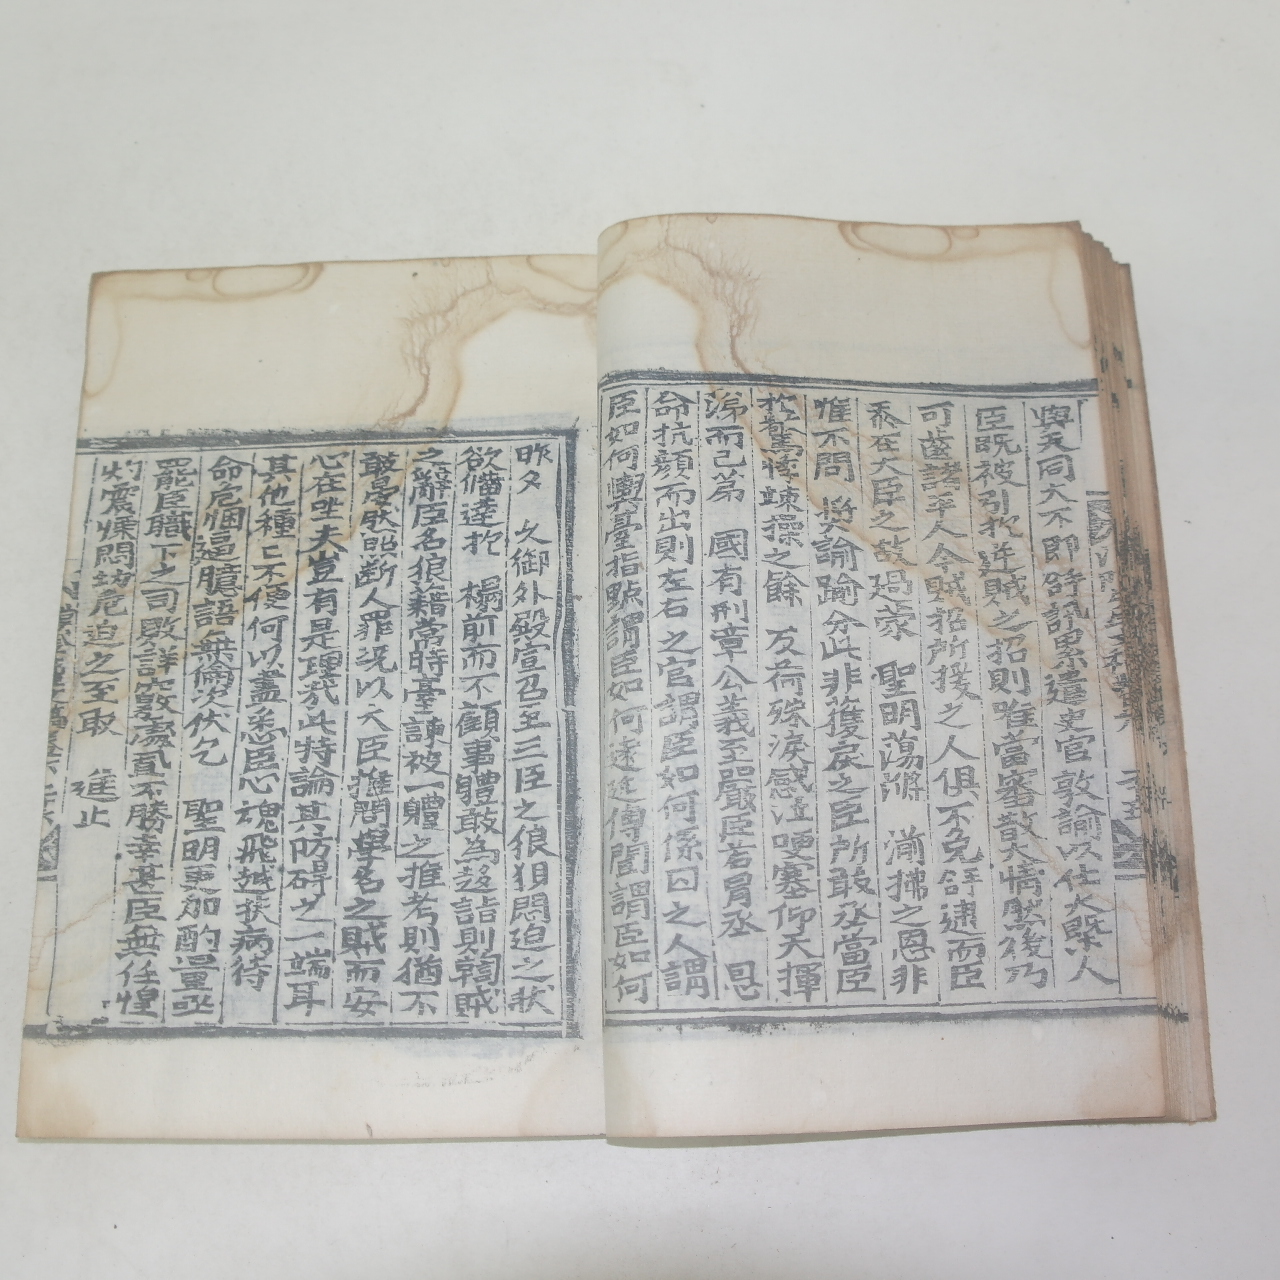 與天同大不即 許訊累遣史官敦諭以仕大槩人
臣旣被引於逆賊之招則唯當審散大情然後乃
可齒諸平人今賊招所援之人俱不免舒逮而臣
忝在大臣之故過蒙 聖明蕩滌 湔拂之恩非
惟不問 奬諭踰分此非獲戾之臣所敢丞當臣
於驚悸竦操之餘 反荷殊淚感泣哽塞仰天揮
涕而已第 國有刑章公義至嚴臣若冒丞 恩
命抗顔而出則左右之官謂臣如何係囚之人謂
臣如何輿臺指點謂臣如何遠近傳聞謂臣如何
昨夕 久御外殿宣召至三臣之狼狽悶迫之狀
欲備達於 榻前而不顧事體敢爲趍詣則賊
之辭臣名狼藉當時臺諫被一軆之推考則猶不
敢晏然照断人罪况以大臣推問擧名之賊而安
心在坐一夫豈有是理哉此特論其防碍之一端耳
其他種亡不便何以盡悉臣心魂飛越扶病待
命危悃逼臆語無倫次伏乞 聖明更加酌量亟
罷臣職下之司敗詳覈處置不勝幸甚臣無任惶
灼震慄悶迫危迫之至取 進止